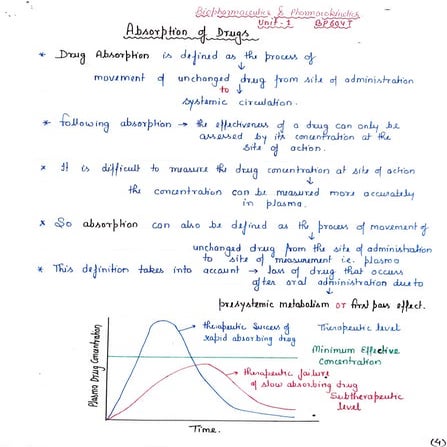 Biopharmaceutics & Pharmacokinetics
Unit-1 BP604T
Absorption of Drugs
* Drug Absorption is defined as the process of
movement of unchanged drug from site of administration
to
systemic circulation.
* Following absorption → the effectiveness of a drug can only be
assessed by its concentration at the
site of action.
* It is difficult to measure the drug concentration at site of action
the concentration can be measured more accurately
in plasma.
* So absorption can also be defined as the process of movement of
unchanged drug from the site of administration
to site of measurement i.e. plasma
* This definition takes into account → loss of drug that occurs
after oral administration due to
presystemic metabolism or first pass effect.
Plasma Drug Concentration
therapeutic success of
rapid absorbing drug
Therapeutic level
Minimum Effective
Concentration
therapeutic failure
of slow absorbing drug
Subtherapeutic
level
Time.
(4)